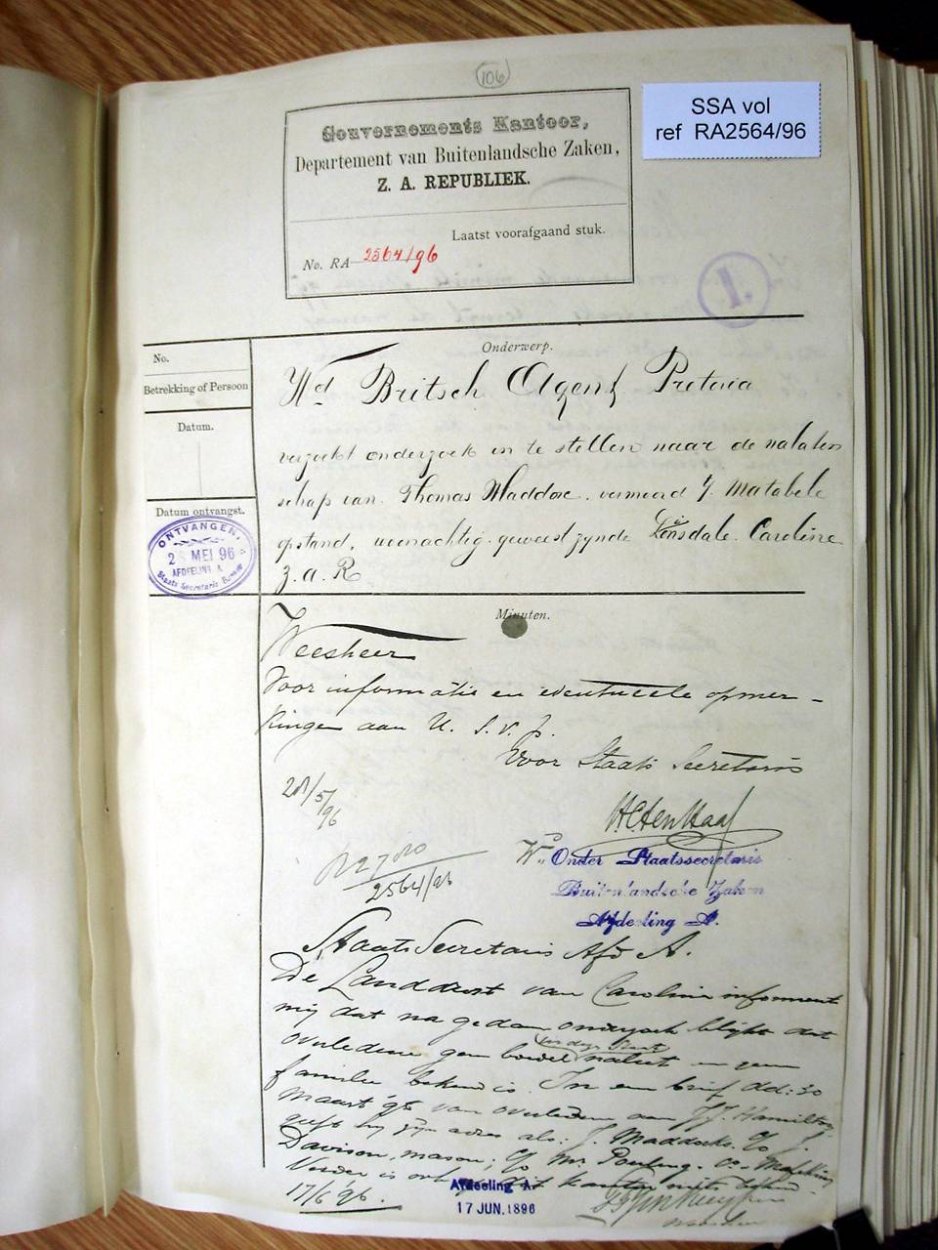 106
SSA vol
ref RA2564/96
Gouvernements Kantoor,
Departement van Buitenlandsche Zaken,
Z. A. REPUBLIEK.
Laatst voorafgaand stuk.
No. RA 2564/96
1.
No.
Betrekking of Persoon
Datum.
Datum ontvangst.
ONTVANGEN,
2 MEI 96
AFDEELING A.
Staats Secretaris
Onderwerp.
Wd Britsch Agent Pretoria
verzoekt onderzoek in te stellen naar de nalaten
schap van Thomas Maddox vermoord Matabele
opstand, woonachtig geweest zynde Caroline
Z.A.R
Minuten.
Weesheer
Voor informatie en eventueele opmer-
kingen aan U. S.v.p.
Voor Staats Secretaris
28/5/96
2564/96
Wd Onder Staatssecretaris
Buitenlandsche Zaken
Afdeeling A.
Staats Secretaris Afd A.
De Landdrost van Carolina informeert
mij dat na gedaan onderzoek blijkt dat
in deze Staat
overledene geen boedel naliet en geen
familie bekend is. In een brief dd: 30
Maart '96 van overledene aan J. Hamilton
geeft hij zijn adres als: J. Maddocks c/o J.
Davison, mason, c/o Mr. Pauling & Co Mafeking
Verder is kantoor niets bekend.
17/6/96.
Afdeeling A.
17 JUN. 1896